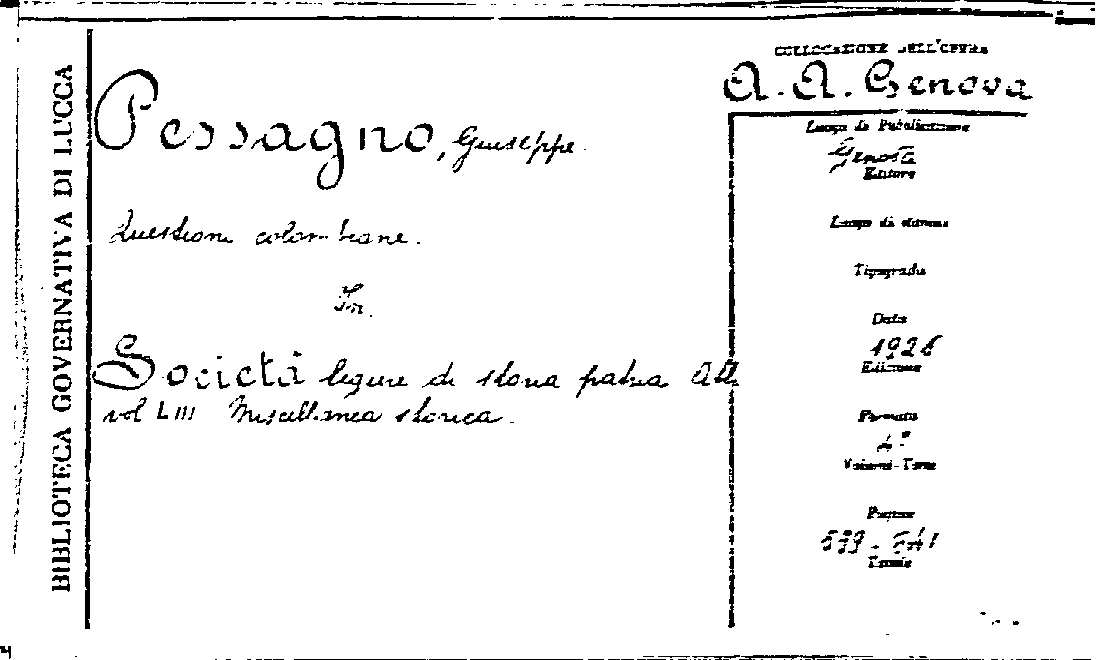 BIBLIOTECA GOVERNATIVA DI LUCCA
Pessagno, Giuseppe.
Questioni colombiane.
In.
Società ligure di storia patria Atti
vol LIII Miscellanea storica.
COLLOCAZIONE DELL'OPERA
A. A. Genova
Luogo di Pubblicazione
Genova
Editore
Luogo di stampa
Tipografia
Data
1926
Edizione
Formato
4°
Volumi-Tomi
Pagine
Tavole